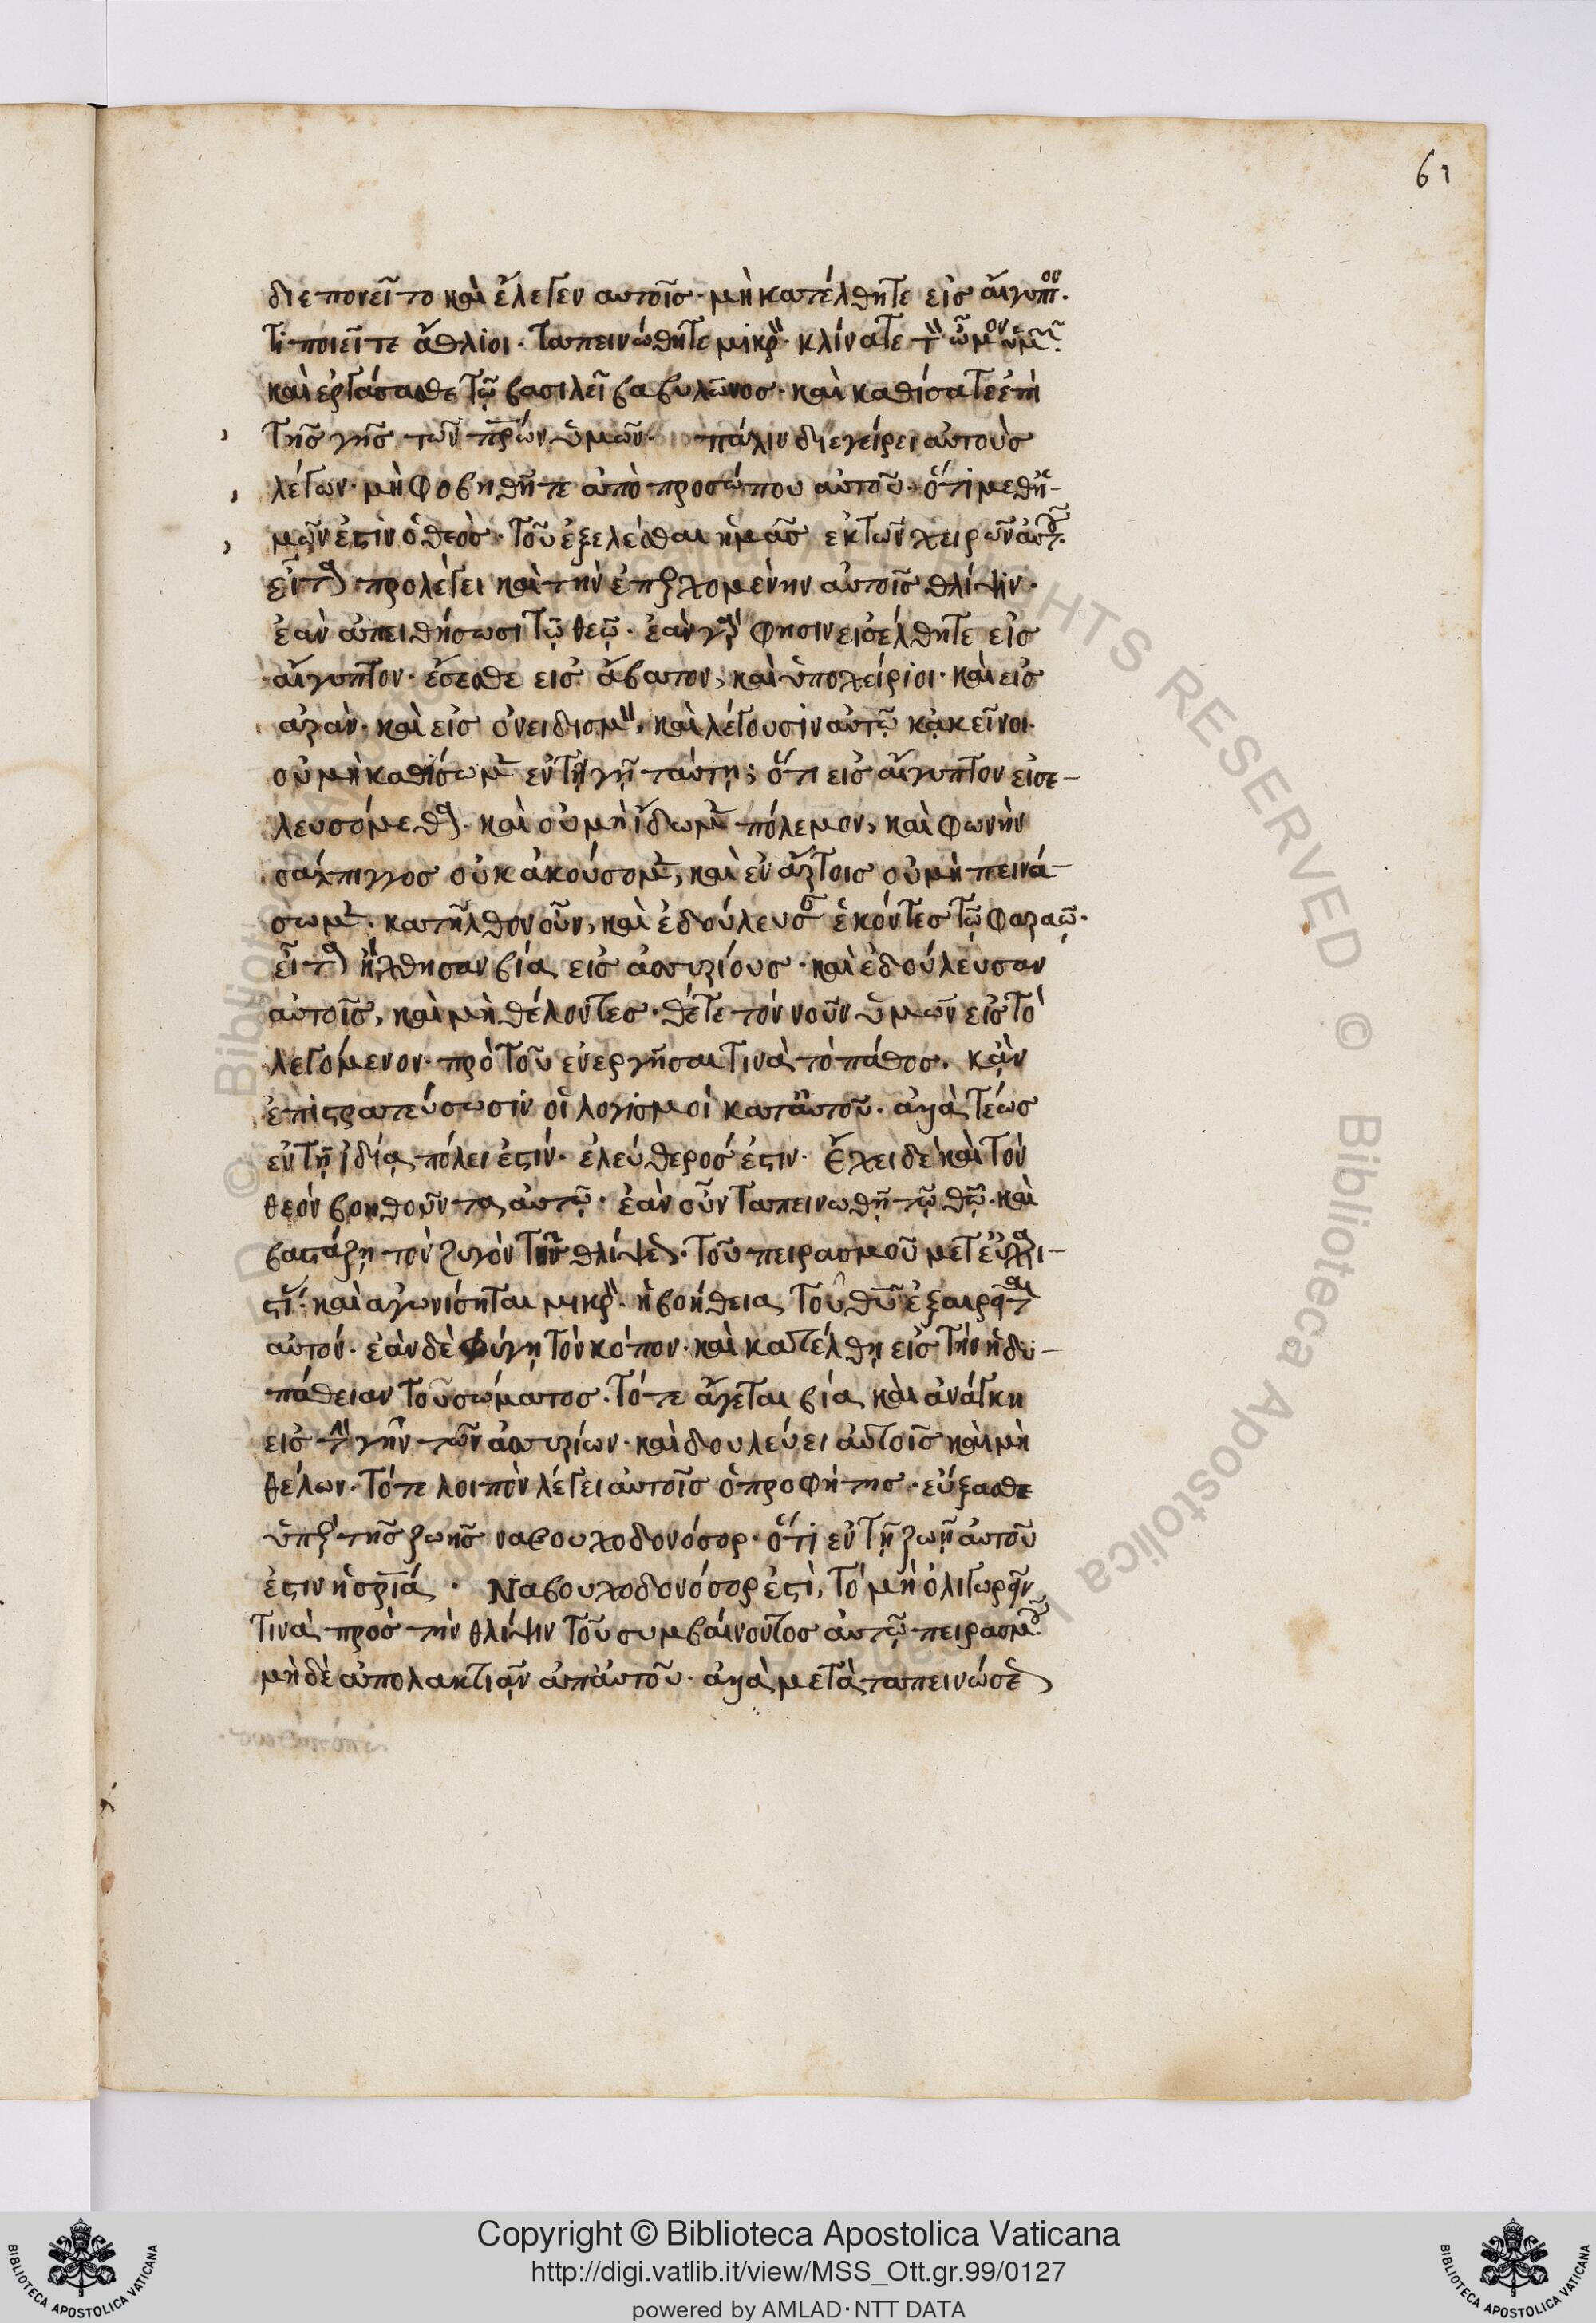 61
διεπονεῖτο καὶ ἔλεγεν αυτοῖς· μὴ κατέλθητε εἰς αἴγυπτον.
τί ποιεῖτε ἄθλιοι· ταπεινώθητε μικρὸν· κλίνατε τὸν ὦμον ὑμῶν
καὶ εργάσασθε τῷ βασιλεῖ βαβυλῶνος· καὶ καθίσατε ἐπὶ
τῆς γῆς τῶν πρων ὑμῶν· πάλιν διεγείρει αὐτοὺς
λέγων· μὴ φοβηθῆτε ἀπὸ προσώπου αὐτοῦ· ὅτι μεθη-
μῶν ἐστιν ὁ θεὸς· τοῦ ἐξελέσθαι ἡμᾶς εκ τῶν χειρῶν αὐτοῦ.
εἶτα προλέγει καὶ τὴν ἐπερχομένην αὐτοῖς θλίψιν·
ἐὰν ἀπειθήσωσι τῷ θεῷ· ἐὰν γὰρ φησιν εισέλθητε εἰς
αἴγυπτον· ἔσεσθε εις ἄβατον, καὶ ὑποχείριοι· καὶ εις
αραν· καὶ εἰς ὀνειδισμὸν, καὶ λέγουσιν αὐτῷ κἀκεῖνοι·
οὐ μὴ καθίσωμεν ἐν τῇ γῇ ταύτῃ; ὅτι εις αἴγυπτον εἰσε-
λευσόμεθα· καὶ οὐ μὴ ἴδωμεν πόλεμον, καὶ φωνὴν
σάλπιγγος οὐκ ἀκούσομεν, καὶ ἐν ἄρτοις οὐ μὴ πεινά-
σωμεν. κατῆλθον οὖν, καὶ ἐδούλευσαν ἑκόντες τῷ φαραῷ.
εἶτα ἤχθησαν βία εις ἀσσυρίους· καὶ ἐδούλευσαν
αὐτοῖς, καὶ μὴ θέλοντες· θέτε τὸν νοῦν ὑμῶν εἰς τὸ
λεγόμενον· πρὸ τοῦ ενεργῆσαι τινὰ τὸ πάθος. κἂν
ἐπιστρατεύσωσιν οἱ λογισμοὶ κατ αυτοῦ· ἀλλὰ τέως
εν τῇ ἰδίᾳ πόλει ἐστίν· ἐλεύθερός ἐστιν· ἔχει δὲ καὶ τὸν
θεὸν βοηθοῦντα αὐτῷ· ἐὰν οὖν ταπεινωθῇ τῷ θῷ· καὶ
βαστάζῃ τὸν ζυγὸν τῆς θλίψεως· τοῦ πειρασμοῦ μετ εὐχαρι-
στίας· καὶ αγωνίσηται μικρὸν· ἡ βοήθεια τοῦ θῦ ἐξαιρεῖται
αὐτόν· εὰν δὲ φύγῃ τὸν κόπον· καὶ κατέλθῃ εἰς τὴν ἡδυ-
πάθειαν τοῦ σώματος. τότε ἄγεται βία καὶ ἀνάγκη
εις τὴν γῆν τῶν ἀσσυρίων· καὶ δουλεύει αὐτοῖς καὶ μὴ
θέλων. τότε λοιπὸν λέγει αὐτοῖς ὁ προφήτης· εύξασθε
ὑπὲρ τῆς ζωῆς ναβουχοδονόσορ· ὅτι εν τῇ ζωῇ αὐτοῦ
ἐστιν ἡ σρία· Ναβουχοδονόσορ ἐστὶ, τὸ μὴ ὀλιγωρεῖν
τινὰ πρὸς τὴν θλίψιν τοῦ συμβαίνοντος αὐτῷ πειρασμοῦ.
μὴ δὲ ἀπολακτιᾶν ἀπ αὐτοῦ· ἀλλὰ μετὰ ταπεινώσεως
Copyright © Biblioteca Apostolica Vaticana
http://digi.vatlib.it/view/MSS_Ott.gr.99/0127
powered by AMLAD·NTT DATA